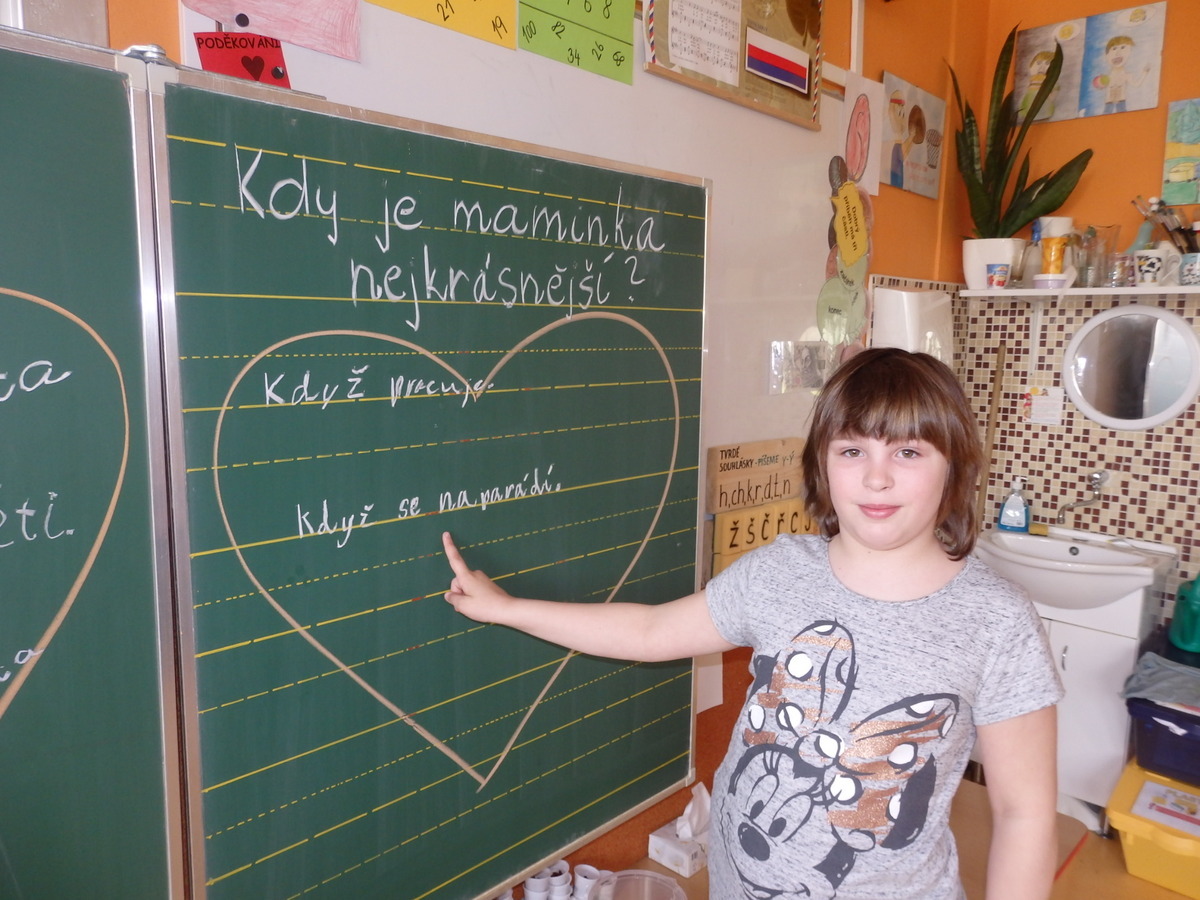 PODĚKOVÁNÍ
21
19
6 8
100 82
34 26 68
Kdy je maminka
nejkrásnější?
Když pracuje.
Když se naparádí.
TVRDÉ
SOUHLÁSKY - PÍŠEME y-ý
h,ch,k,r,d,t,n
ŽŠČŘCJ